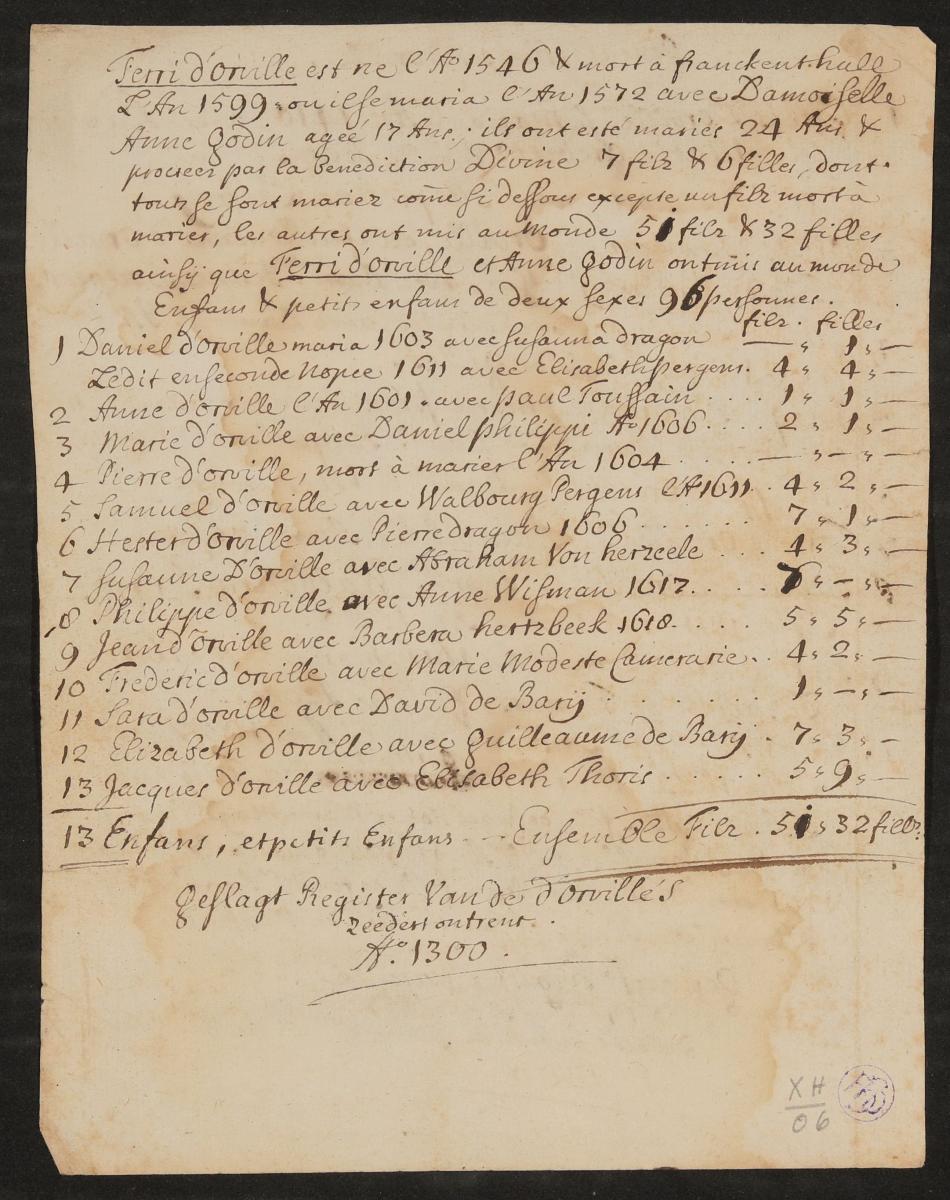 Ferri d'orville est ne l'Ao 1546 & mort à franckenthall
L'An 1599 ou il se maria l'An 1572 avec Damoiselle
Anne godin ageé 17 Ans, ils ont esté mariés 24 Ans &
procreer par la benediction Divine 7 filz & 6 filles, dont
touts se sont mariez come si dessous excepte un filz mort à
marier, les autres ont mis au Monde 51 filz & 32 filles
ainsÿ que Ferri d'orville et Anne godin ont mis au monde
Enfans & petits enfans de deux sexes 96 personnes.
filz. filles
1 Daniel d'orville maria 1603 avec susanna dragon — „ 1 „ —
Ledit en seconde Nopce 1611 avec Elisabeth pergens. 4 „ 4 „ —
2 Anne d'orville l'An 1601 avec paul Toussain .... 1 „ 1 „ —
3 Marie d'orville avec Daniel philippi Ao 1606 .... 2 „ 1 „ —
4 Pierre d'orville, mort à marier l'An 1604 ..... — „ — „ —
5 Samuel d'orville avec Walbourg Pergens l'A 1611 .. 4 „ 2 „ —
6 Hester d'orville avec Pierre dragon 1606 ...... 7 „ 1 „ —
7 susanne D'orville avec Abraham Von herzeele ... 4 „ 3 „ —
8 Philippe d'orville avec Anne Wisman 1617. .... „ — „ —
9 Jean d'orville avec Barbera hertzbeek 1618. .... 5 „ 5 „ —
10 Frederic d'orville avec Marie Modeste Camerarie .. 4 „ 2 „ —
11 Sara d'orville avec David de Barÿ ...... 1 „ — „ —
12 Elizabeth d'orville avec guilleaume de Barÿ . 7 „ 3 „ —
13 Jacques d'orville avec Elisabeth Thoris ..... 5 „ 9 „ —
13 Enfans, et petits Enfans -- Ensemble Filz . 51 „ 32 fillz
geslagt Register Van de d'orville's
zeedert ontrent.
Ao. 1300.
XH
06